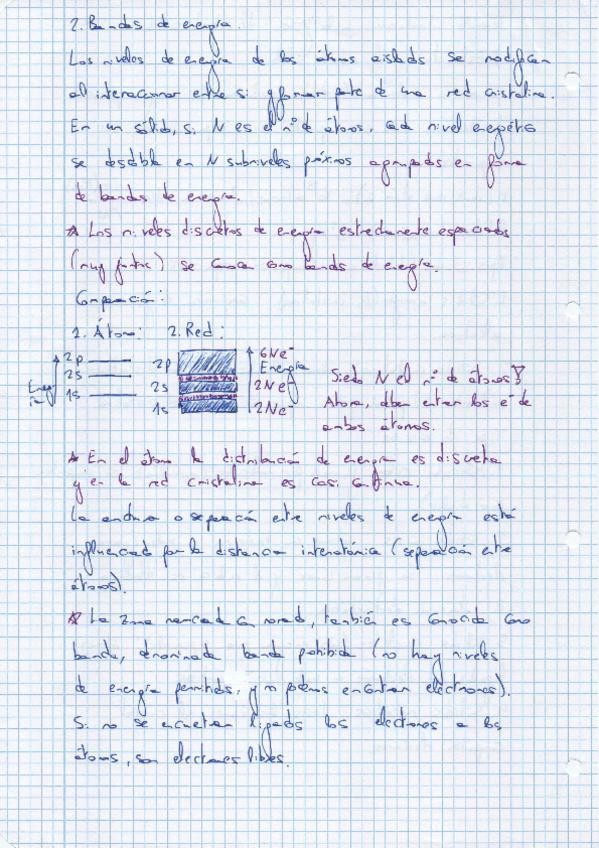 2. Bandas de energía.
Los niveles de energía de los átomos aislados se modifican
al interaccionar entre si y formar parte de una red cristalina.
En un sólido, si N es el nº de átomos, cada nivel energético
se desdobla en N subniveles próximos agrupados en forma
de bandas de energía.
* Los niveles discretos de energía estrechamente espaciados
(muy juntos) se conoce como bandas de energía.
Comparación:
1. Átomo: 2. Red:
2p 2p 6Ne⁻
2s Energía
Energía 2s 2Ne⁻ Siedo N el nº de átomos
1s 1s 2Ne⁻ Ahora, deben entrar los e⁻ de
ambos átomos.
* En el átomo la distribución de energía es discreta
y en la red cristalina es casi continua.
La anchura o separación entre niveles de energía está
influenciada por la distancia interatómica (separación entre
átomos).
* La zona marcada en morado, también es conocida como
banda, denominada banda prohibida (no hay niveles
de energía permitidos, y no podemos encontrar electrones).
Si no se encuetran ligados los electrones a los
átomos, son electrones libres.